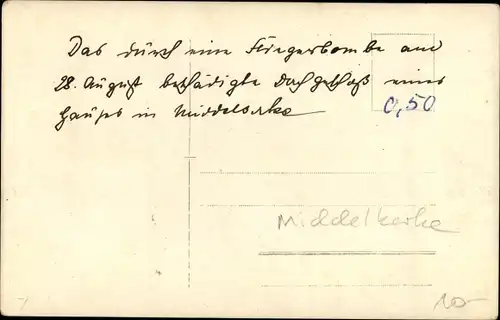 Das durch eine Fliegerbombe am
28. August beschädigte Dachgeschoß eines
Hauses in Middelkerke
0,50
Middelkerke
10,-